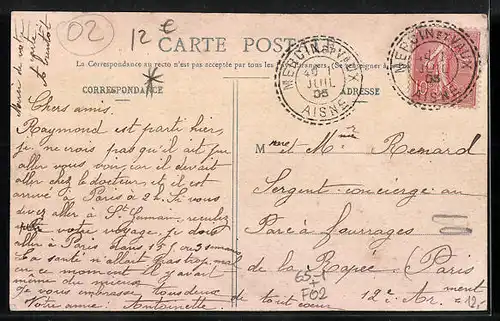 02
12 €
CARTE POSTALE
La Correspondance au recto n'est pas acceptée par tous les
CORRESPONDANCE
ADRESSE
MERCIN ET VAUX
JUIL
05
AISNE
MERCIN ET VAUX
05
AISNE
Merci de votre
carte
à bientôt
Chers amis.
Raymond est parti hier,
je ne crois pas qu'il ait pu
aller vous voir, car il devait
aller chez le docteur, et il est
arrivé à Paris à 2h. Si vous
devez aller à St Germain, reculez
votre voyage. Je dois
aller à Paris dans 15 j ou 3 semaines
La santé n'allait pas trop mal
en ce moment il y avait
même du mieux.
Je vous embrasse tous deux de tout cœur
Votre amie: Antoinette.
Mr et Mme Renard
Sergent-concierge au
Parc à fourrages
de la Rapée (Paris
12e Ar.ment
65+
F02
12,